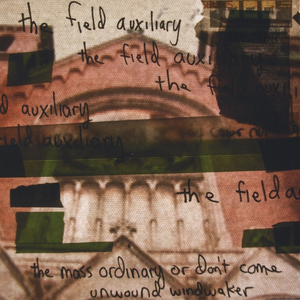 the field auxiliary
the field auxi
the f
d auxiliary
field auxiliary
the field a
the mass ordinary or don't come
unwound windwaker